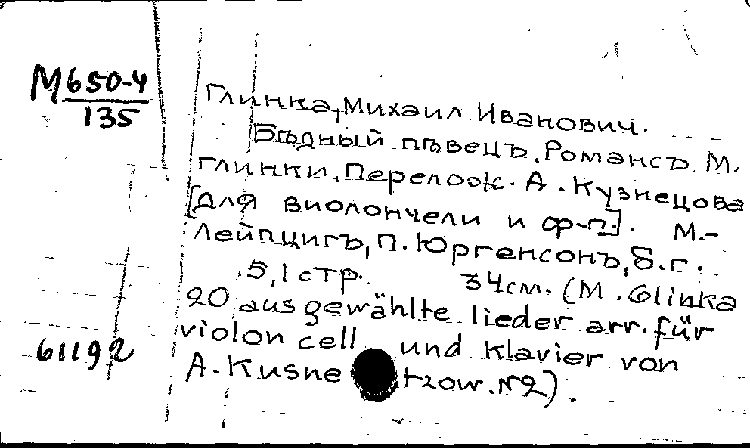 М650-4
135
Глинка, Михаил Иванович.
Бѣдный пѣвецъ. Романсъ М.
Глинки. Перелож. А. Кузнецова
[для виолончели и ф-п.]. М.-
Лейпцигъ, П. Юргенсонъ, б.г.
5,1 стр. 34см. (M. Glinka
20 ausgewählte lieder arr. für
violon cell und Klavier von
A. Kusne tzow. №2).
61192